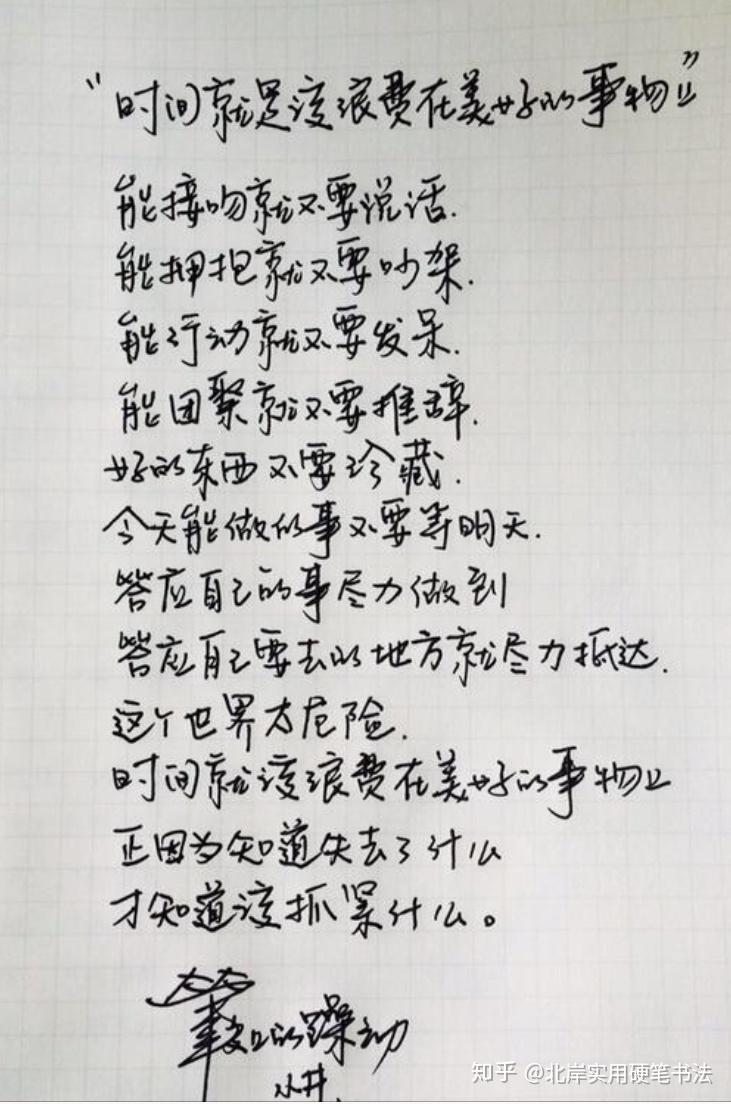 “时间就是该浪费在美好的事物上”
能接吻就不要说话.
能拥抱就不要吵架.
能行动就不要发呆.
能团聚就不要推辞.
好的东西不要珍藏.
今天能做的事不要等明天.
答应自己的事尽力做到
答应自己要去的地方就尽力抵达.
这个世界太危险.
时间就该浪费在美好的事物上
正因为知道失去了什么
才知道该抓紧什么。
的躁动
小井.
知乎 @北岸实用硬笔书法